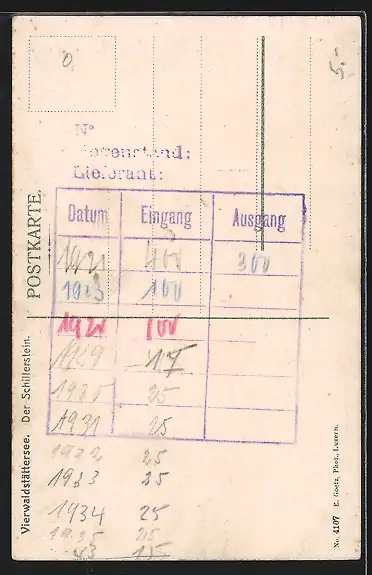 5.-
0
N°
Gegenstand:
Lieferant:
POSTKARTE.
Vierwaldstättersee. Der Schillerstein.
Datum Eingang Ausgang
1921 400 300
1923 100
1928 100
1929 17
1930 25
1931 25
1932 25
1933 25
1934 25
1935 25
43 15
No. 4107 E. Goetz, Phot., Luzern.